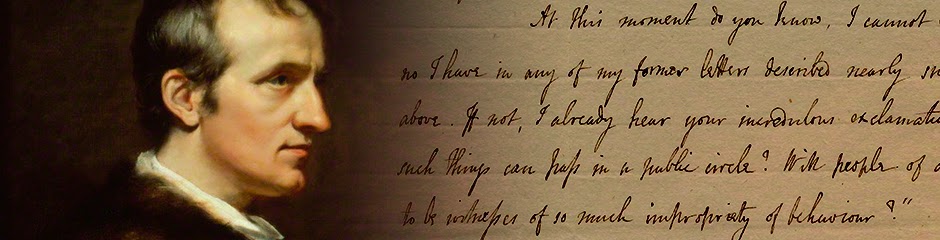 At this moment do you know, I cannot
no I have in any of my former letters described nearly
above. If not, I already hear your incredulous exclamati
such things can pass in a public circle? Will people of
to be witnesses of so much impropriety of behaviour ?"